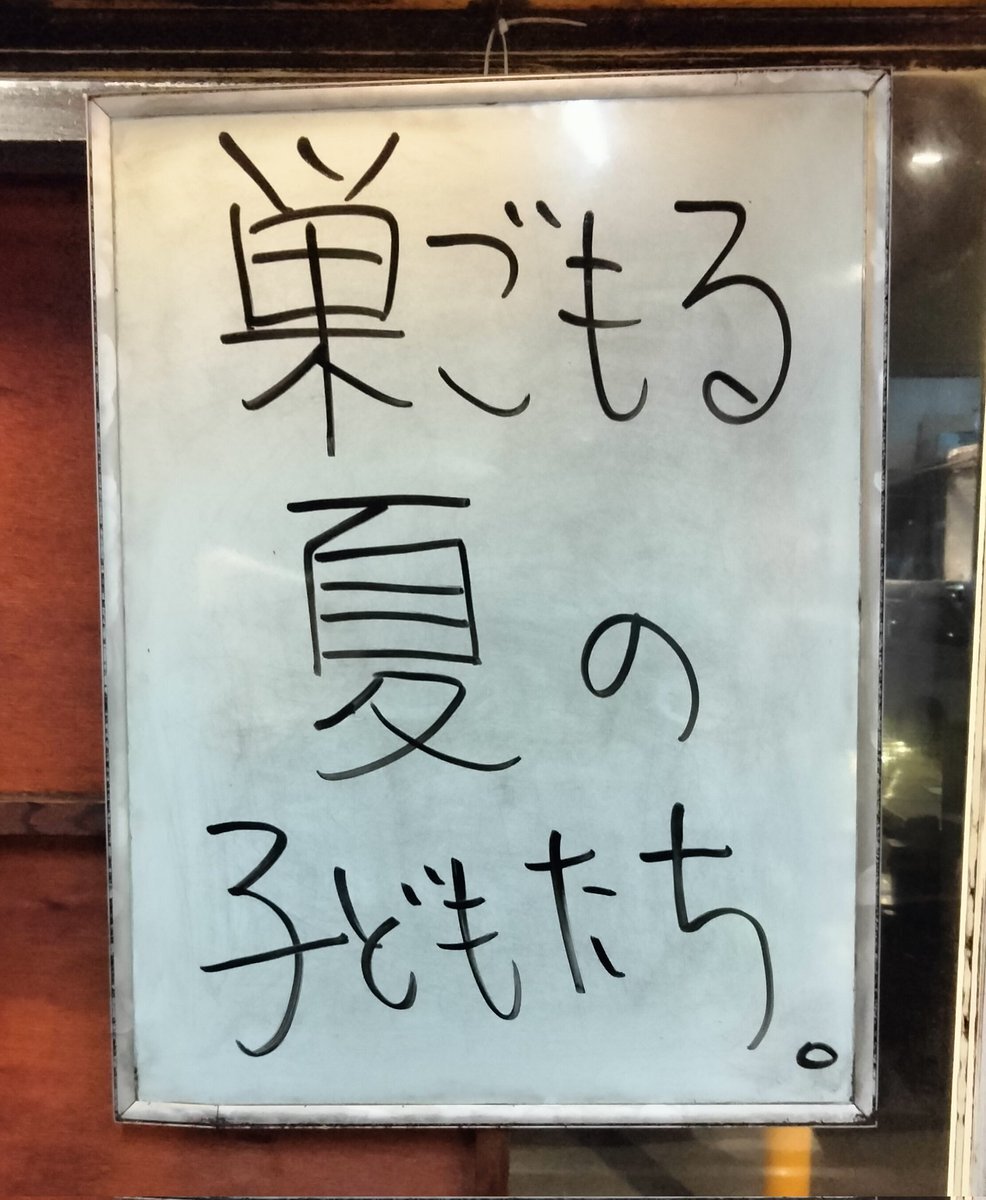 巣ごもる
夏の
子どもたち。